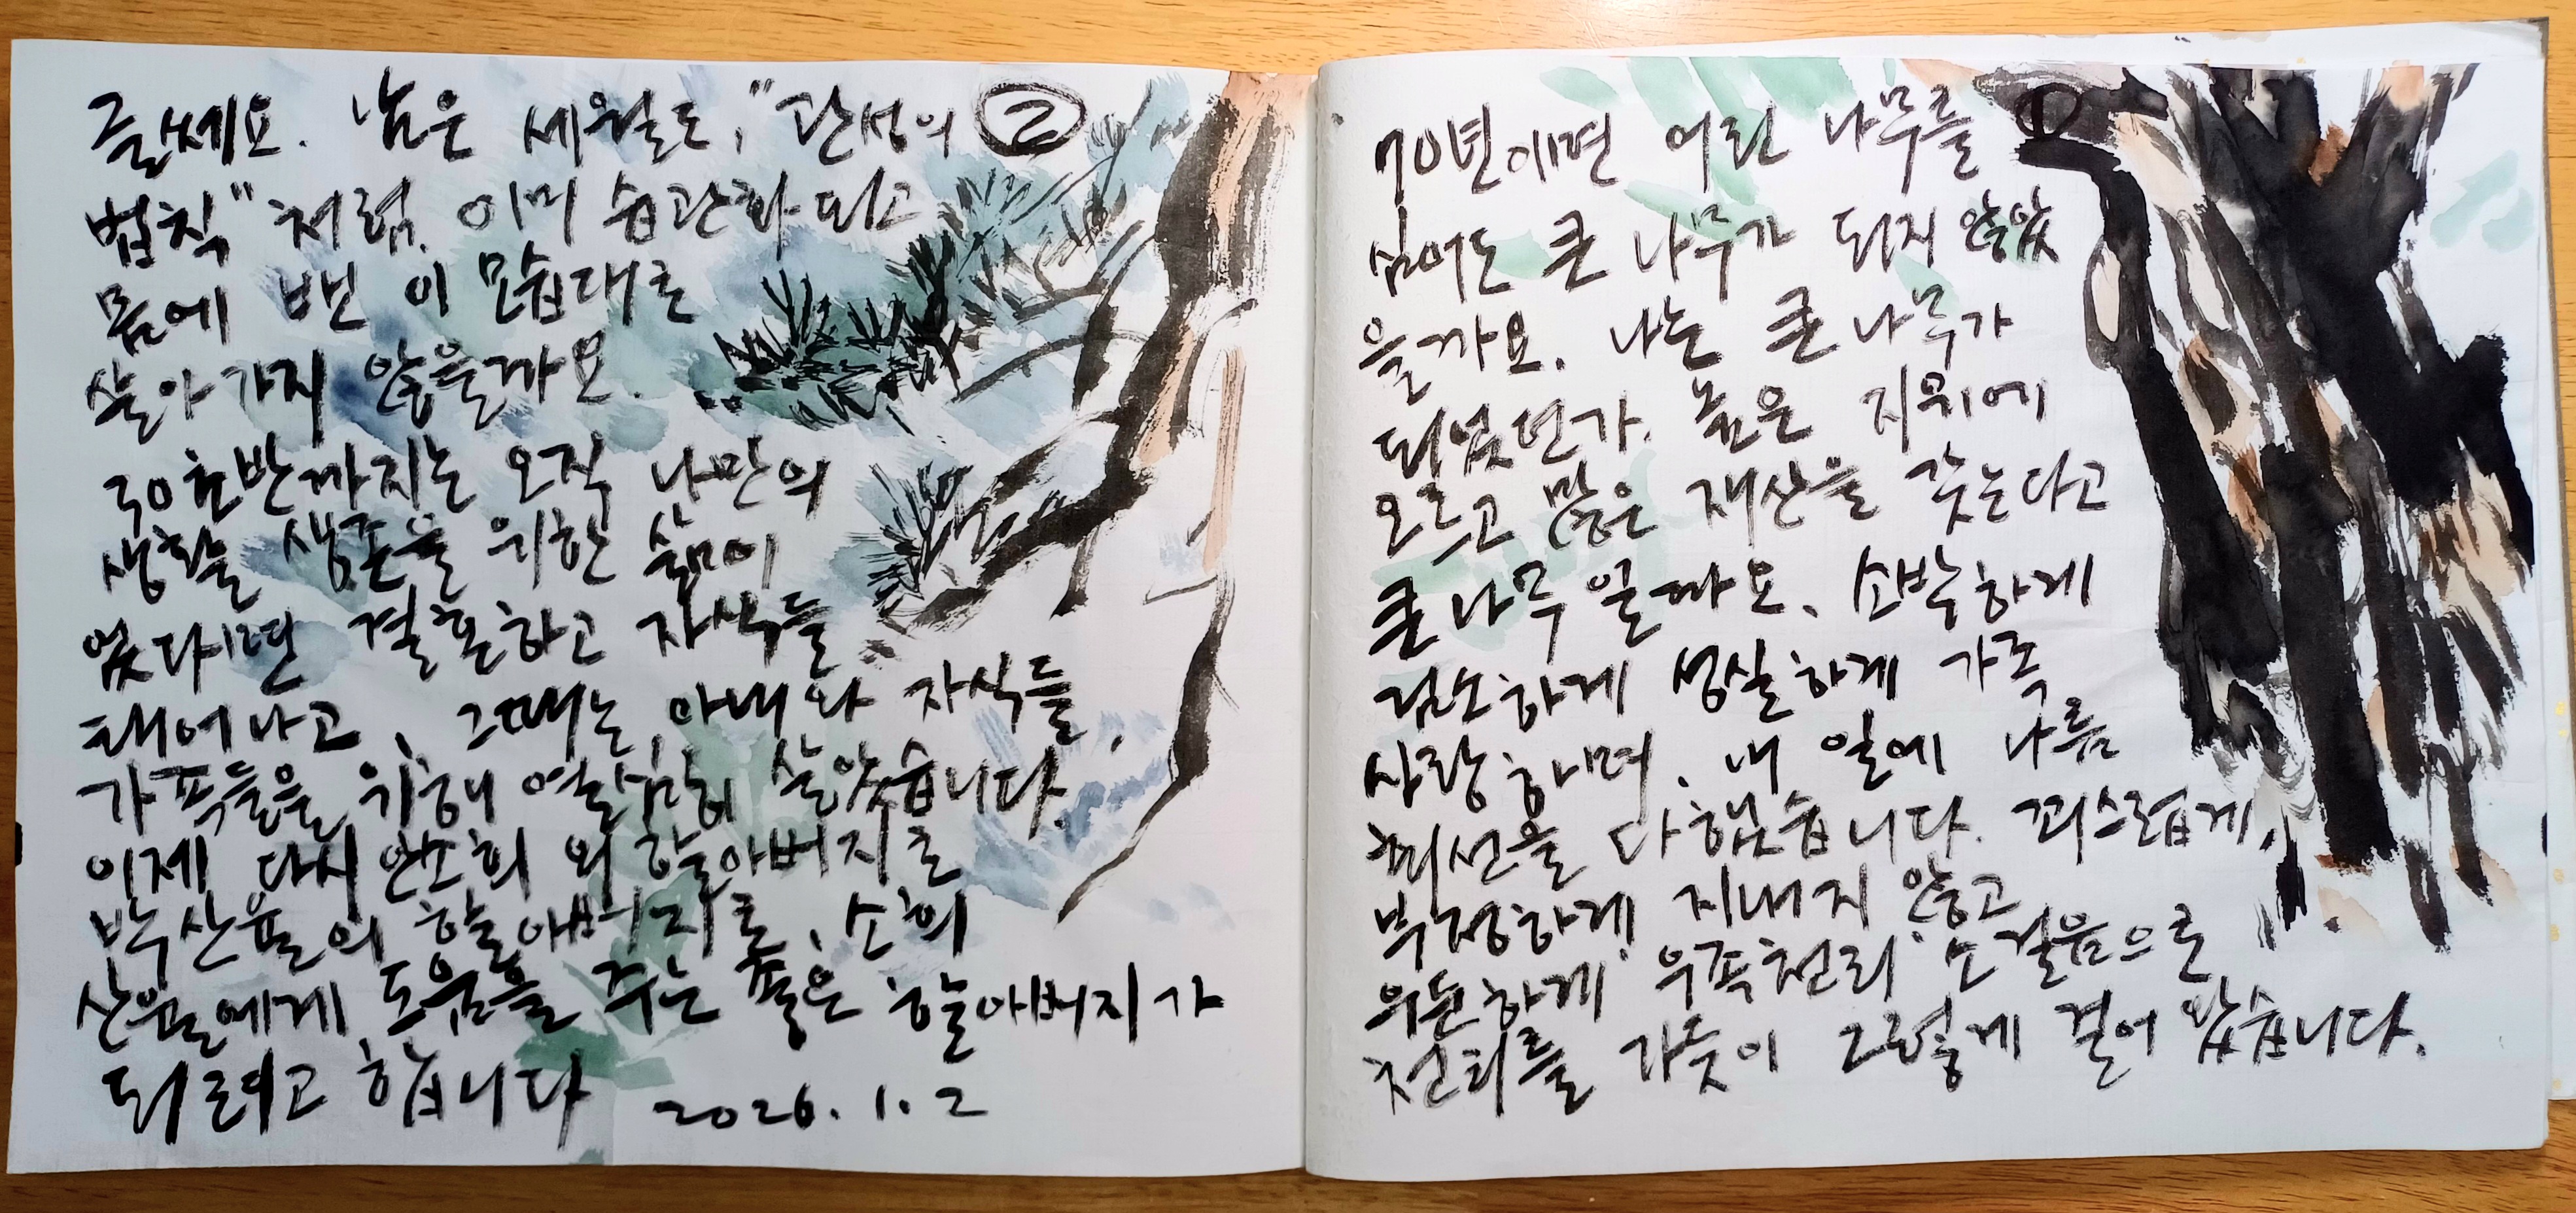 ①
70년이면 어린 나무를
심어도 큰 나무가 되지 않았
을까요. 나는 큰 나무가
되었던가. 높은 지위에
오르고 많은 재산을 갖는다고
큰 나무일까요. 소박하게
검소하게 성실하게 가족
사랑하며. 내 일에 나름
최선을 다했습니다. 꾀스럽게,
부정하게 지내지 않고
우둔하게 우족천리 소걸음으로
천리를 가듯이 그렇게 걸어 왔습니다.
②
글쎄요. 남은 세월도, "관성의
법칙" 처럼. 이미 습관화 되고
몸에 밴 이 모습대로
살아가지 않을까요.
30초반까지는 오직 나만의
생활 생존을 위한 삶이
었다면 결혼하고 자식들
태어나고, 그때는 아내와 자식들,
가족들을 위해 열심히 살았습니다.
이제 다시 안소희 외할아버지로
박산율의 할아버지로, 소희
산율에게 도움을 주는 좋은 할아버지가
되려고 합니다
2026. 1. 2